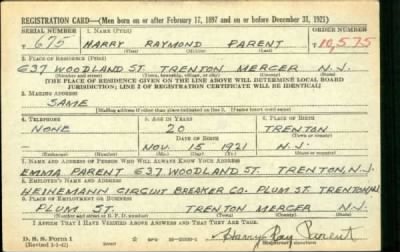 REGISTRATION CARD—(Men born on or after February 17, 1897 and on or before December 31, 1921)
SERIAL NUMBER 1. NAME (Print) ORDER NUMBER
675 HARRY RAYMOND PARENT 10,575
(First) (Middle) (Last)
2. PLACE OF RESIDENCE (Print)
637 WOODLAND ST. TRENTON MERCER N.J.
(Number and street) (Town, township, village, or city) (County) (State)
[THE PLACE OF RESIDENCE GIVEN ON THE LINE ABOVE WILL DETERMINE LOCAL BOARD
JURISDICTION; LINE 2 OF REGISTRATION CERTIFICATE WILL BE IDENTICAL]
3. MAILING ADDRESS
SAME
[Mailing address if other than place indicated on line 2. If same insert word same]
4. TELEPHONE 5. AGE IN YEARS 6. PLACE OF BIRTH
NONE 20 TRENTON
DATE OF BIRTH (Town or county)
NOV. 15 1921 N.J.
(Exchange) (Number) (Mo.) (Day) (Yr.) (State or country)
7. NAME AND ADDRESS OF PERSON WHO WILL ALWAYS KNOW YOUR ADDRESS
EMMA PARENT 637 WOODLAND ST. TRENTON, N.J.
8. EMPLOYER'S NAME AND ADDRESS
HEINEMANN CIRCUIT BREAKER CO. PLUM ST. TRENTON N.J.
9. PLACE OF EMPLOYMENT OR BUSINESS
PLUM ST. TRENTON MERCER N.J.
(Number and street or R. F. D. number) (Town) (County) (State)
I AFFIRM THAT I HAVE VERIFIED ABOVE ANSWERS AND THAT THEY ARE TRUE.
D. S. S. Form 1
(Revised 1-1-42) GPO Harry Ray Parent
(Registrant's signature)